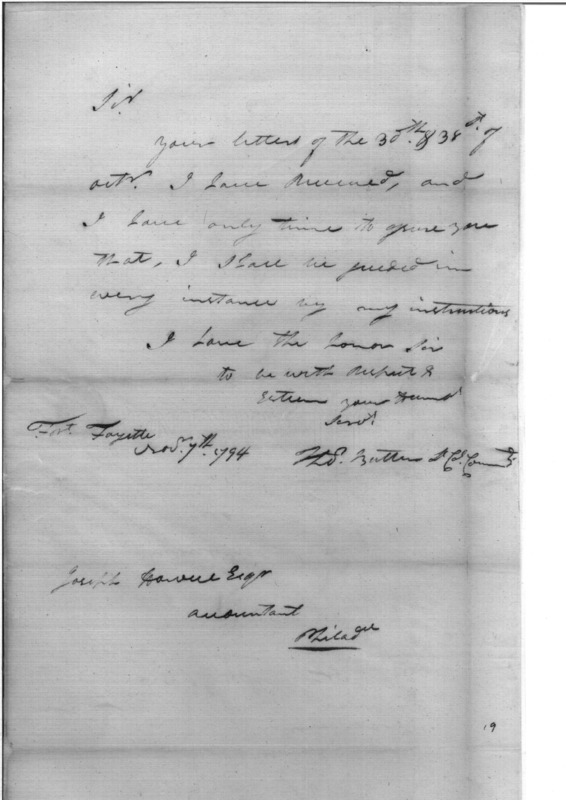 Sir
your letters of the 30th. & 3st. of
octr. I have Received, and
I have only time to assure you
that, I Shall be guided in
every instance by my instructions
I have the honor Sir
to be with Respect &
Esteem your Humbl
Servt
Fort Fayette
Novr. 7th. 1794
Thos. Butler Lt. Col. Commdt
Joseph Howell Esqr
accountant
Philade
19